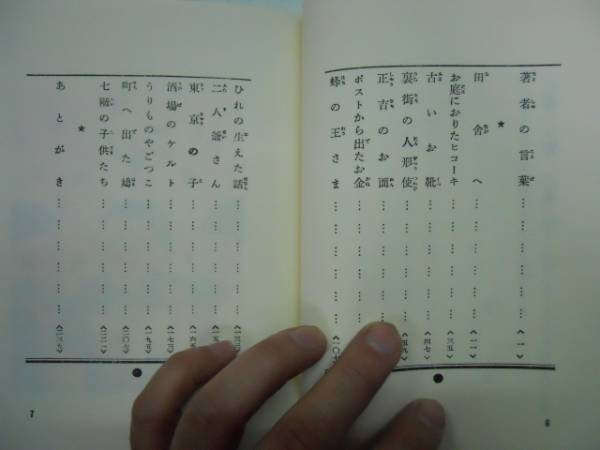 著者の言葉………………〈一一〉
★
田舎へ………………〈一一〉
お庭におりたヒコーキ………………〈三五〉
古いお靴………………〈四七〉
裏街の人形使………………〈五九〉
正吉のお面………………
ポストから出たお金………………
蜂の王さま………………〈一〇
6
ひれの生えた話………………〈一三
二人爺さん………………〈一五
東京の子………………〈一六五〉
酒場のケルト………………〈一七三〉
うりものやごつこ………………〈一九五〉
町へ出た鳩………………〈二〇七〉
七階の子供たち………………〈二二一〉
★
あとがき………………〈二三九〉
7